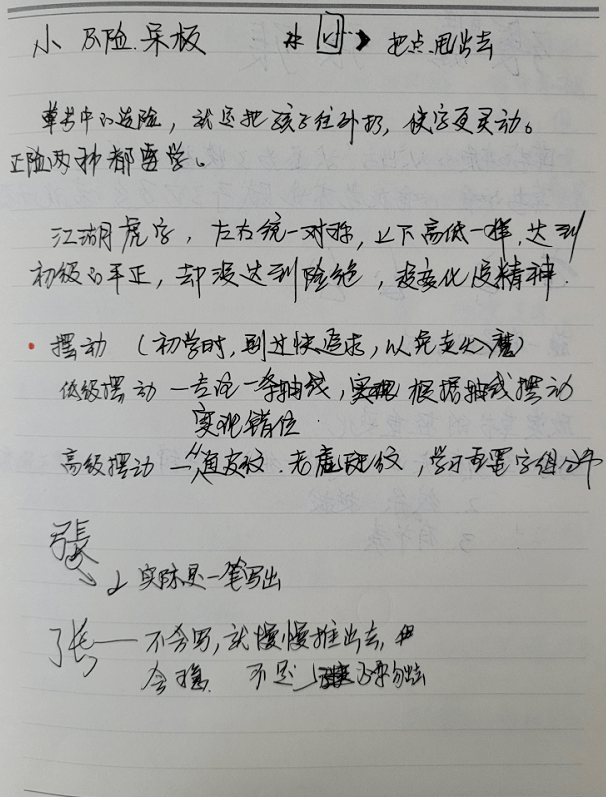 小 不险.呆板 把点甩出去
单书中的造险，就是把孩子往外扔，使字更灵动。
正险两种都要学。
江湖虎字，左右统一对称，上下高低一样，达到
初级的平正，却没达到险绝，没变化没精神.
摆动 （初学时，别过快追求，以免走火入魔）
低级摆动 一去一条轴线，根据轴线摆动
实现错位.
高级摆动 一鱼皮纹.老虎斑纹，学习布置字组
張
实际是一笔写出
张 — 不会写，就慢慢推出去，
会稳. 不是